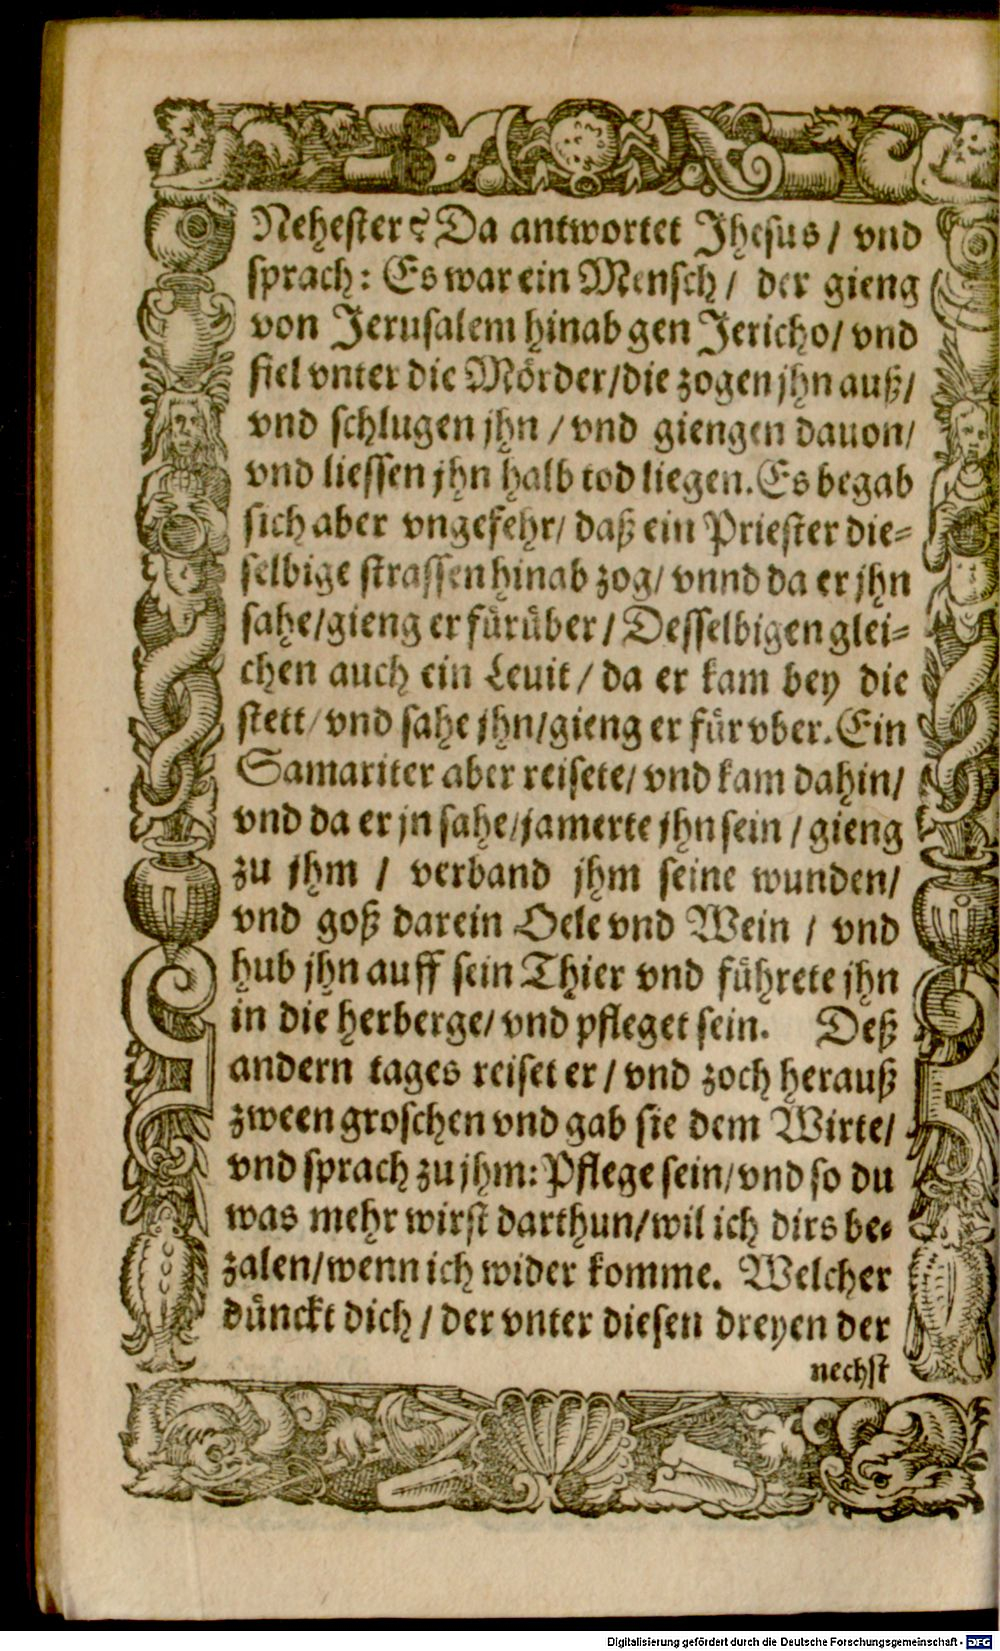 Nehester? Da antwortet Jhesus / vnd
sprach: Es war ein Mensch / der gieng
von Jerusalem hinab gen Jericho / vnd
fiel vnter die Mörder / die zogen jhn auß /
vnd schlugen jhn / vnd giengen dauon /
vnd liessen jhn halb tod liegen. Es begab
sich aber vngefehr / daß ein Priester die=
selbige strassen hinab zog / vnnd da er jhn
sahe / gieng er fürüber / Desselbigen glei=
chen auch ein Leuit / da er kam bey die
stett / vnd sahe jhn / gieng er für vber. Ein
Samariter aber reisete / vnd kam dahin /
vnd da er jn sahe / jamerte jhn sein / gieng
zu jhm / verband jhm seine wunden /
vnd goß darein Oele vnd Wein / vnd
hub jhn auff sein Thier vnd führete jhn
in die herberge / vnd pfleget sein. Deß
andern tages reiset er / vnd zoch herauß
zween groschen vnd gab sie dem Wirte /
vnd sprach zu jhm: Pflege sein / vnd so du
was mehr wirst darthun / wil ich dirs be=
zalen / wenn ich wider komme. Welcher
dünckt dich / der vnter diesen dreyen der
nechst
Digitalisierung gefördert durch die Deutsche Forschungsgemeinschaft - DFG